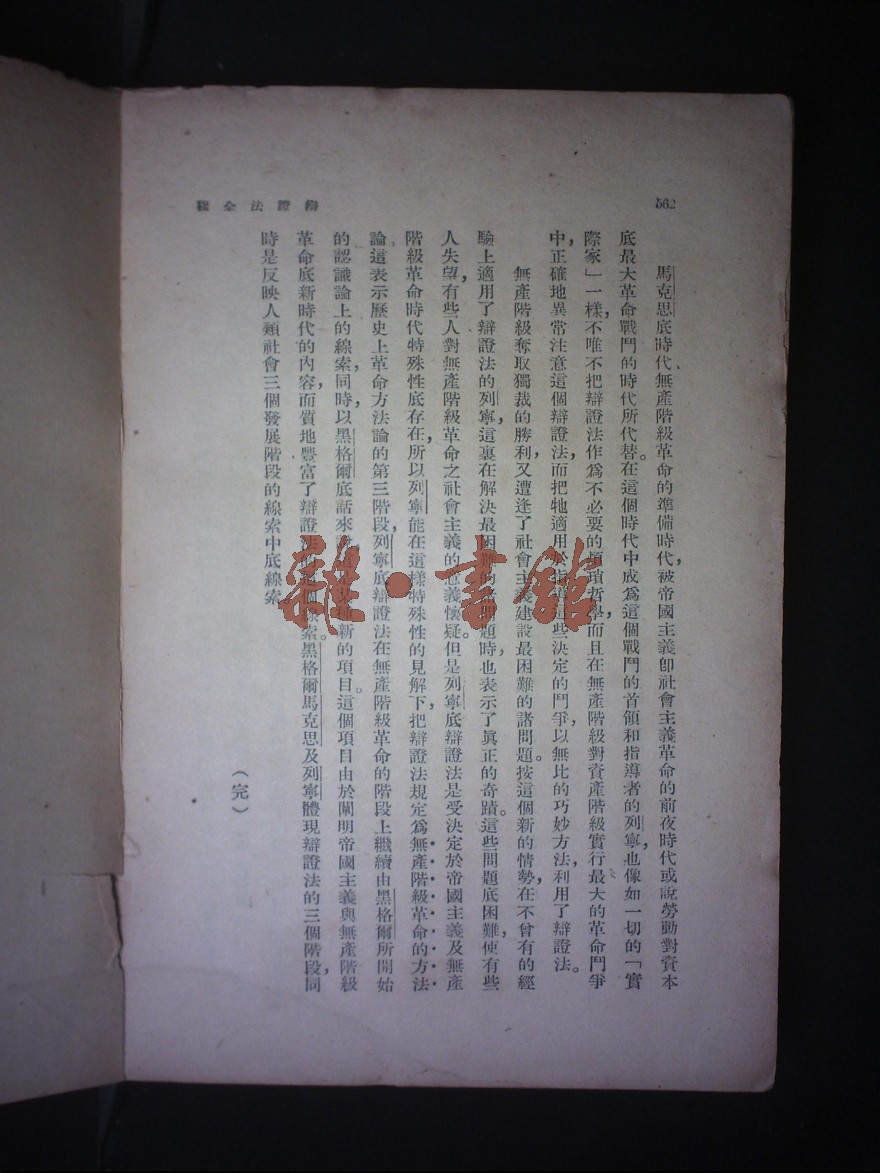 562
辯證法全程
馬克思底時代、無產階級革命的準備時代,被帝國主義卽社會主義革命的前夜時代或說勞動對資本
底最大革命戰鬥的時代所代替。在這個時代中成爲這個戰鬥的首領和指導者的列寧,也像如一切的「實
際家」一樣,不唯不把辯證法作爲不必要的煩瑣哲學,而且在無產階級對資產階級實行最大的革命鬥爭
中,正確地異常注意這個辯證法,而把牠適用於指導這些決定的鬥爭,以無比的巧妙方法,利用了辯證法。
無產階級奪取獨裁的勝利,又遭逢了社會主義建設最困難的諸問題。按這個新的情勢,在不曾有的經
驗上適用了辯證法的列寧,這裏在解決最困難的諸問題時,也表示了眞正的奇蹟。這些問題底困難,使有些
人失望,有些人對無產階級革命之社會主義的意義懷疑。但是列寧底辯證法是受決定於帝國主義及無產
階級革命時代特殊性底存在,所以列寧能在這樣特殊性的見解下,把辯證法規定爲無產階級革命的方法
論。這表示歷史上革命方法論的第三階段,列寧底辯證法在無產階級革命的階段上繼續由黑格爾所開始
的認識論上的線索,同時,以黑格爾底話來新的項目。這個項目由於闡明帝國主義與無產階級
革命底新時代的內容,而質地豐富了辯證法線索。黑格爾馬克思及列寧體現辯證法的三個階段,同
時是反映人類社會三個發展階段的線索中底線索。
(完)
雜·書館